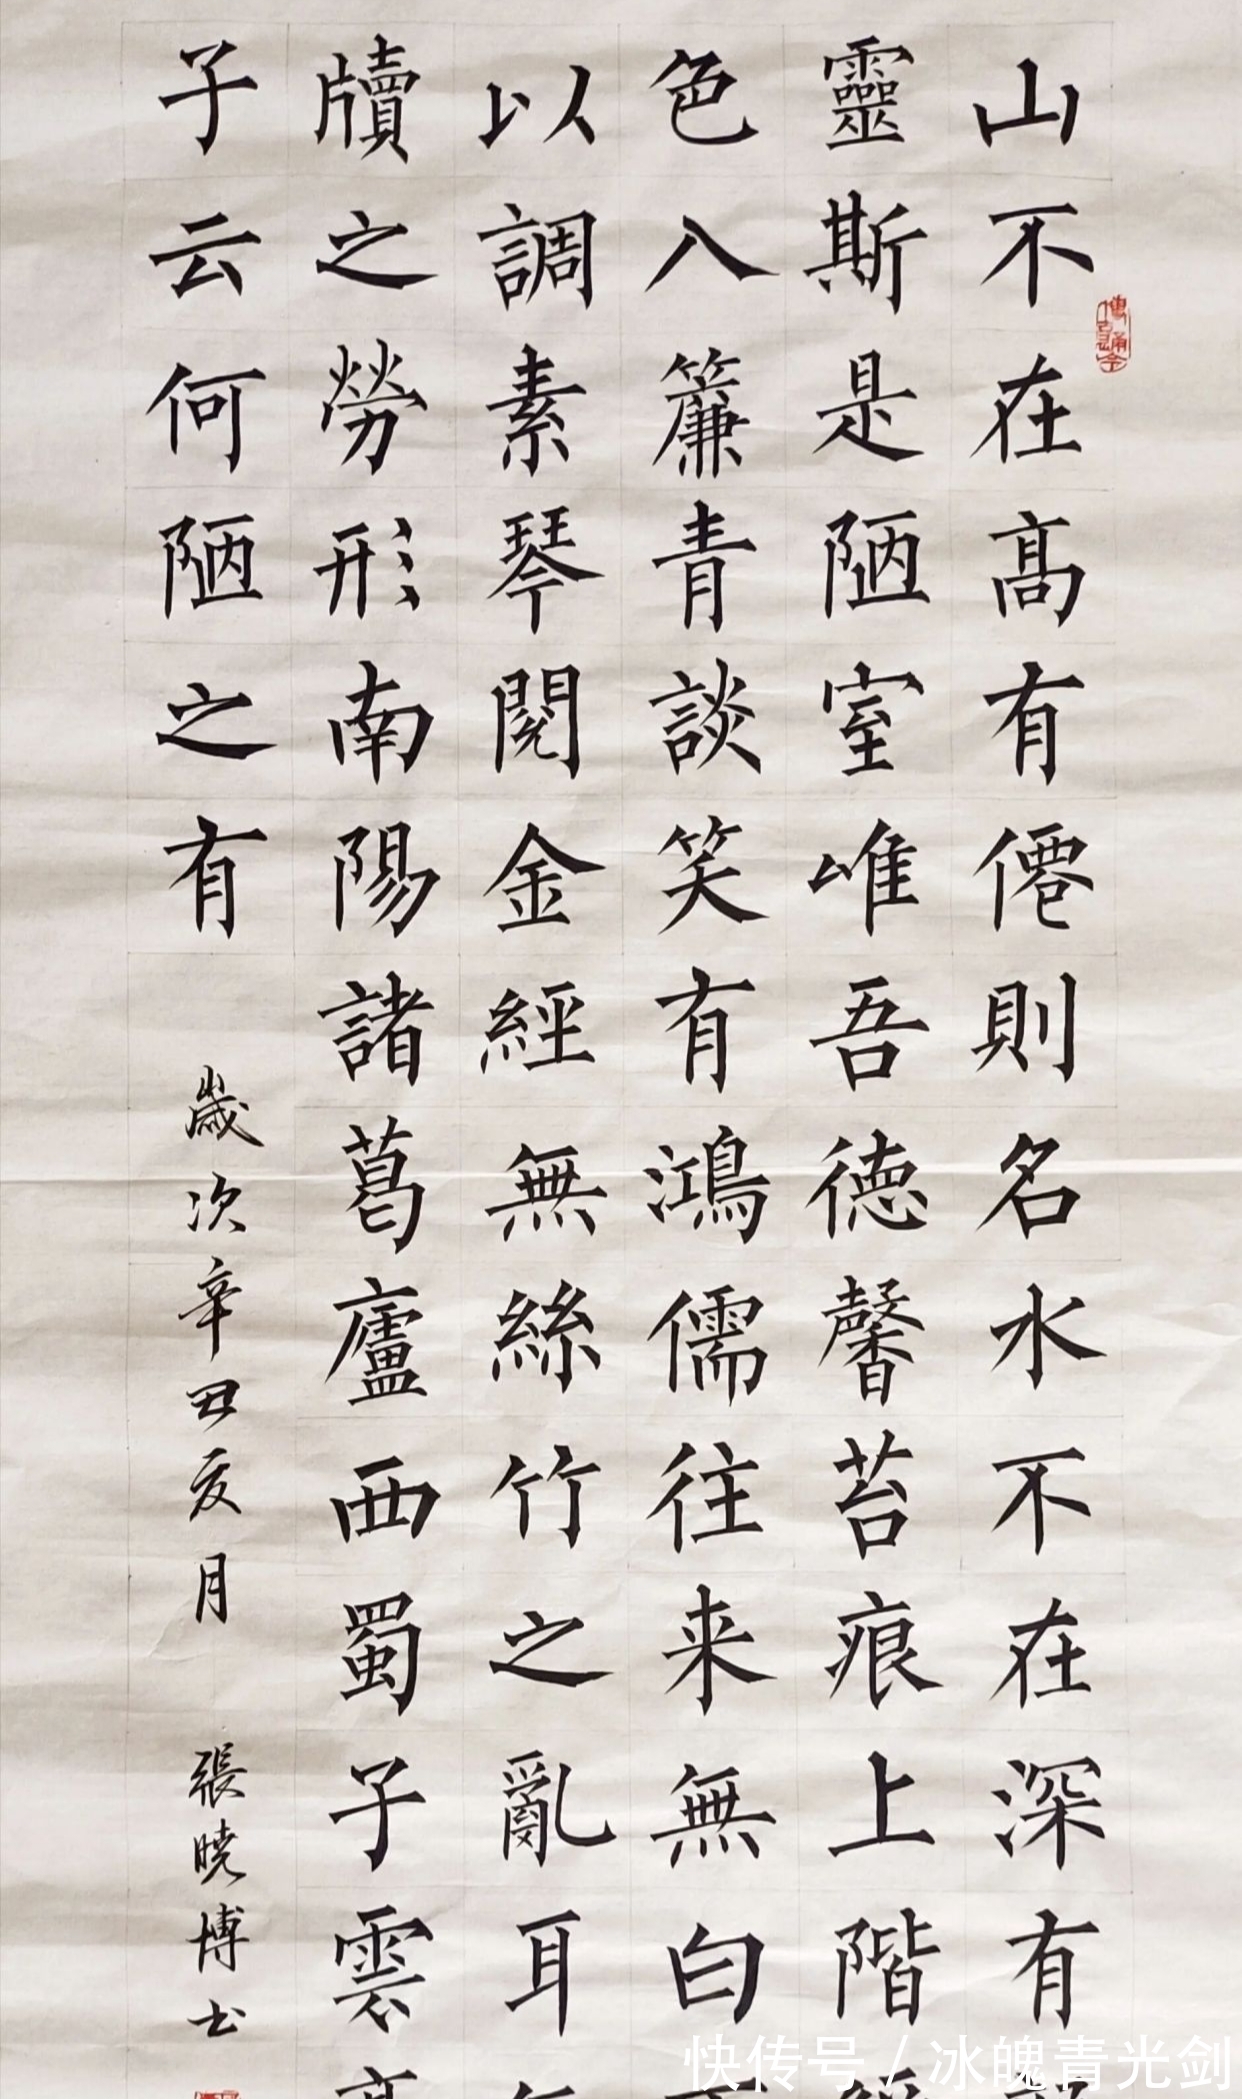 山不在高有僊則名水不在深有
靈斯是陋室唯吾德馨苔痕上階
色入簾青談笑有鴻儒往来無白
以調素琴閱金經無絲竹之亂耳
牘之勞形南陽諸葛廬西蜀子雲
子云何陋之有
歲次辛丑亥月
張曉博书
快传号/冰魄青光剑